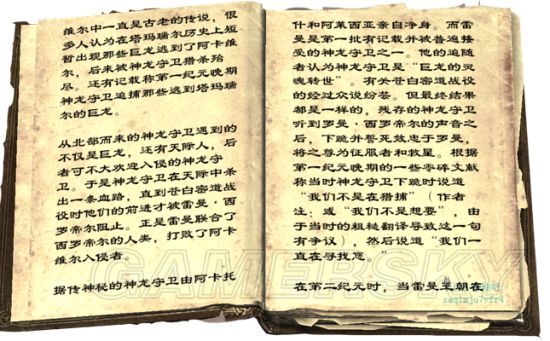 维尔中一直是古老的传说，很
多人认为在塔玛瑞尔历史上短
暂出现那些巨龙逃到了阿卡维
尔，后来被神龙守卫猎杀殆
尽。还有记载称第一纪元晚期
神龙守卫追捕那些逃到塔玛瑞
尔的巨龙。
从北部而来的神龙守卫遇到的
不仅是巨龙，还有天际人，后
者可不大欢迎入侵的神龙守
卫。于是神龙守卫在天际中杀
出一条血路，直到苍白密道战
役时他们的前进才被雷曼·西
罗帝尔阻止。正是雷曼联合了
西罗帝尔的人类，打败了阿卡
维尔入侵者。
据传神秘的神龙守卫由阿卡托
什和阿莱西亚亲自净身。而雷
曼是第一批有记载并被普遍接
受的神龙守卫之一。他的追随
者认为阿西亚是“巨龙的灵
魂转世”。有关苍白密道战役
的经过众说纷芸。但最终结果
都是一样的，残存的神龙守卫
听到罗曼·西罗帝尔的声音之
后，下跪并誓死效忠于罗曼，
将之尊为征服者和救星。根据
第一纪元晚期的一些零碎文献
称当时神龙守卫下跪时说道
“我们不是在猎捕”（作者
注：或“我们不是想要”，由
于当时的粗糙翻译导致这一句
有争议），然后说道“我们一
直在寻找您。”
在第二纪元时，当雷曼王朝在
GAMERSKY
zaqimju7vfr4